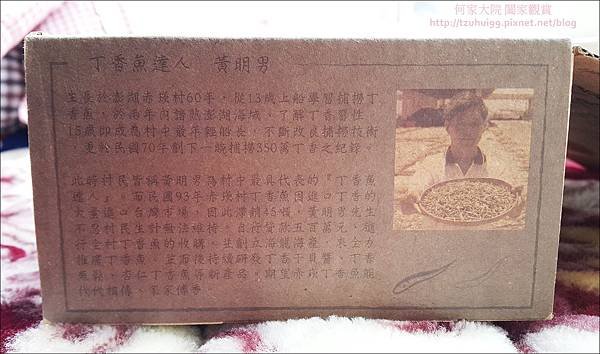 何家大院 闔家觀賞
http://tzuhuigg.pixnet.net/blog
丁香魚達人 黃明男
生長於澎湖赤崁村60年，從13歲上船學習捕撈丁
香魚，於兩年內諳熟澎湖海域，了解丁香習性，
15歲即成為村中最年輕船長，不斷改良捕撈技術
，更於民國70年創下一晚捕撈350萬丁香之紀錄。
此時村民皆稱黃明男為村中最具代表的『丁香魚
達人』。而民國93年赤崁村丁香魚因進口丁香的
大量進口台灣市場，因此滯銷45噸，黃明男先生
不忍村民生計無法維持，自行貸款五百萬元，進
行全村丁香魚的收購，並創立海龍海產，來全力
推廣丁香魚，並而後持續研發丁香干貝醬、丁香
魚鬆、杏仁丁香魚等新產品，期望赤崁丁香魚能
代代相傳、家家傳香